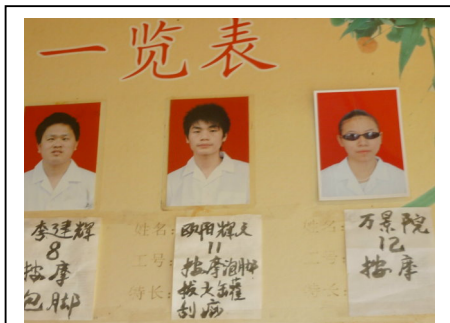 一览表
李建辉
8
按摩
包脚
姓名:
工号:
特长:
欧阳辉文
11
按摩泡脚
拔火缶罐
刮痧
姓名:
工号:
特长:
万景院
12
按摩